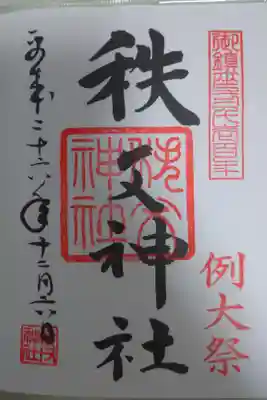 例大祭
秩父神社
秩父神社
平成二十六年十二月六日